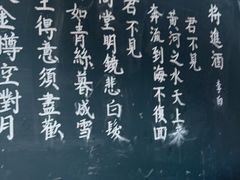 将進酒 李白
君不見
黃河之水天上來
奔流到海不復回
君不見
高堂明鏡悲白髮
如青絲暮成雪
生得意須盡歡
金樽空對月